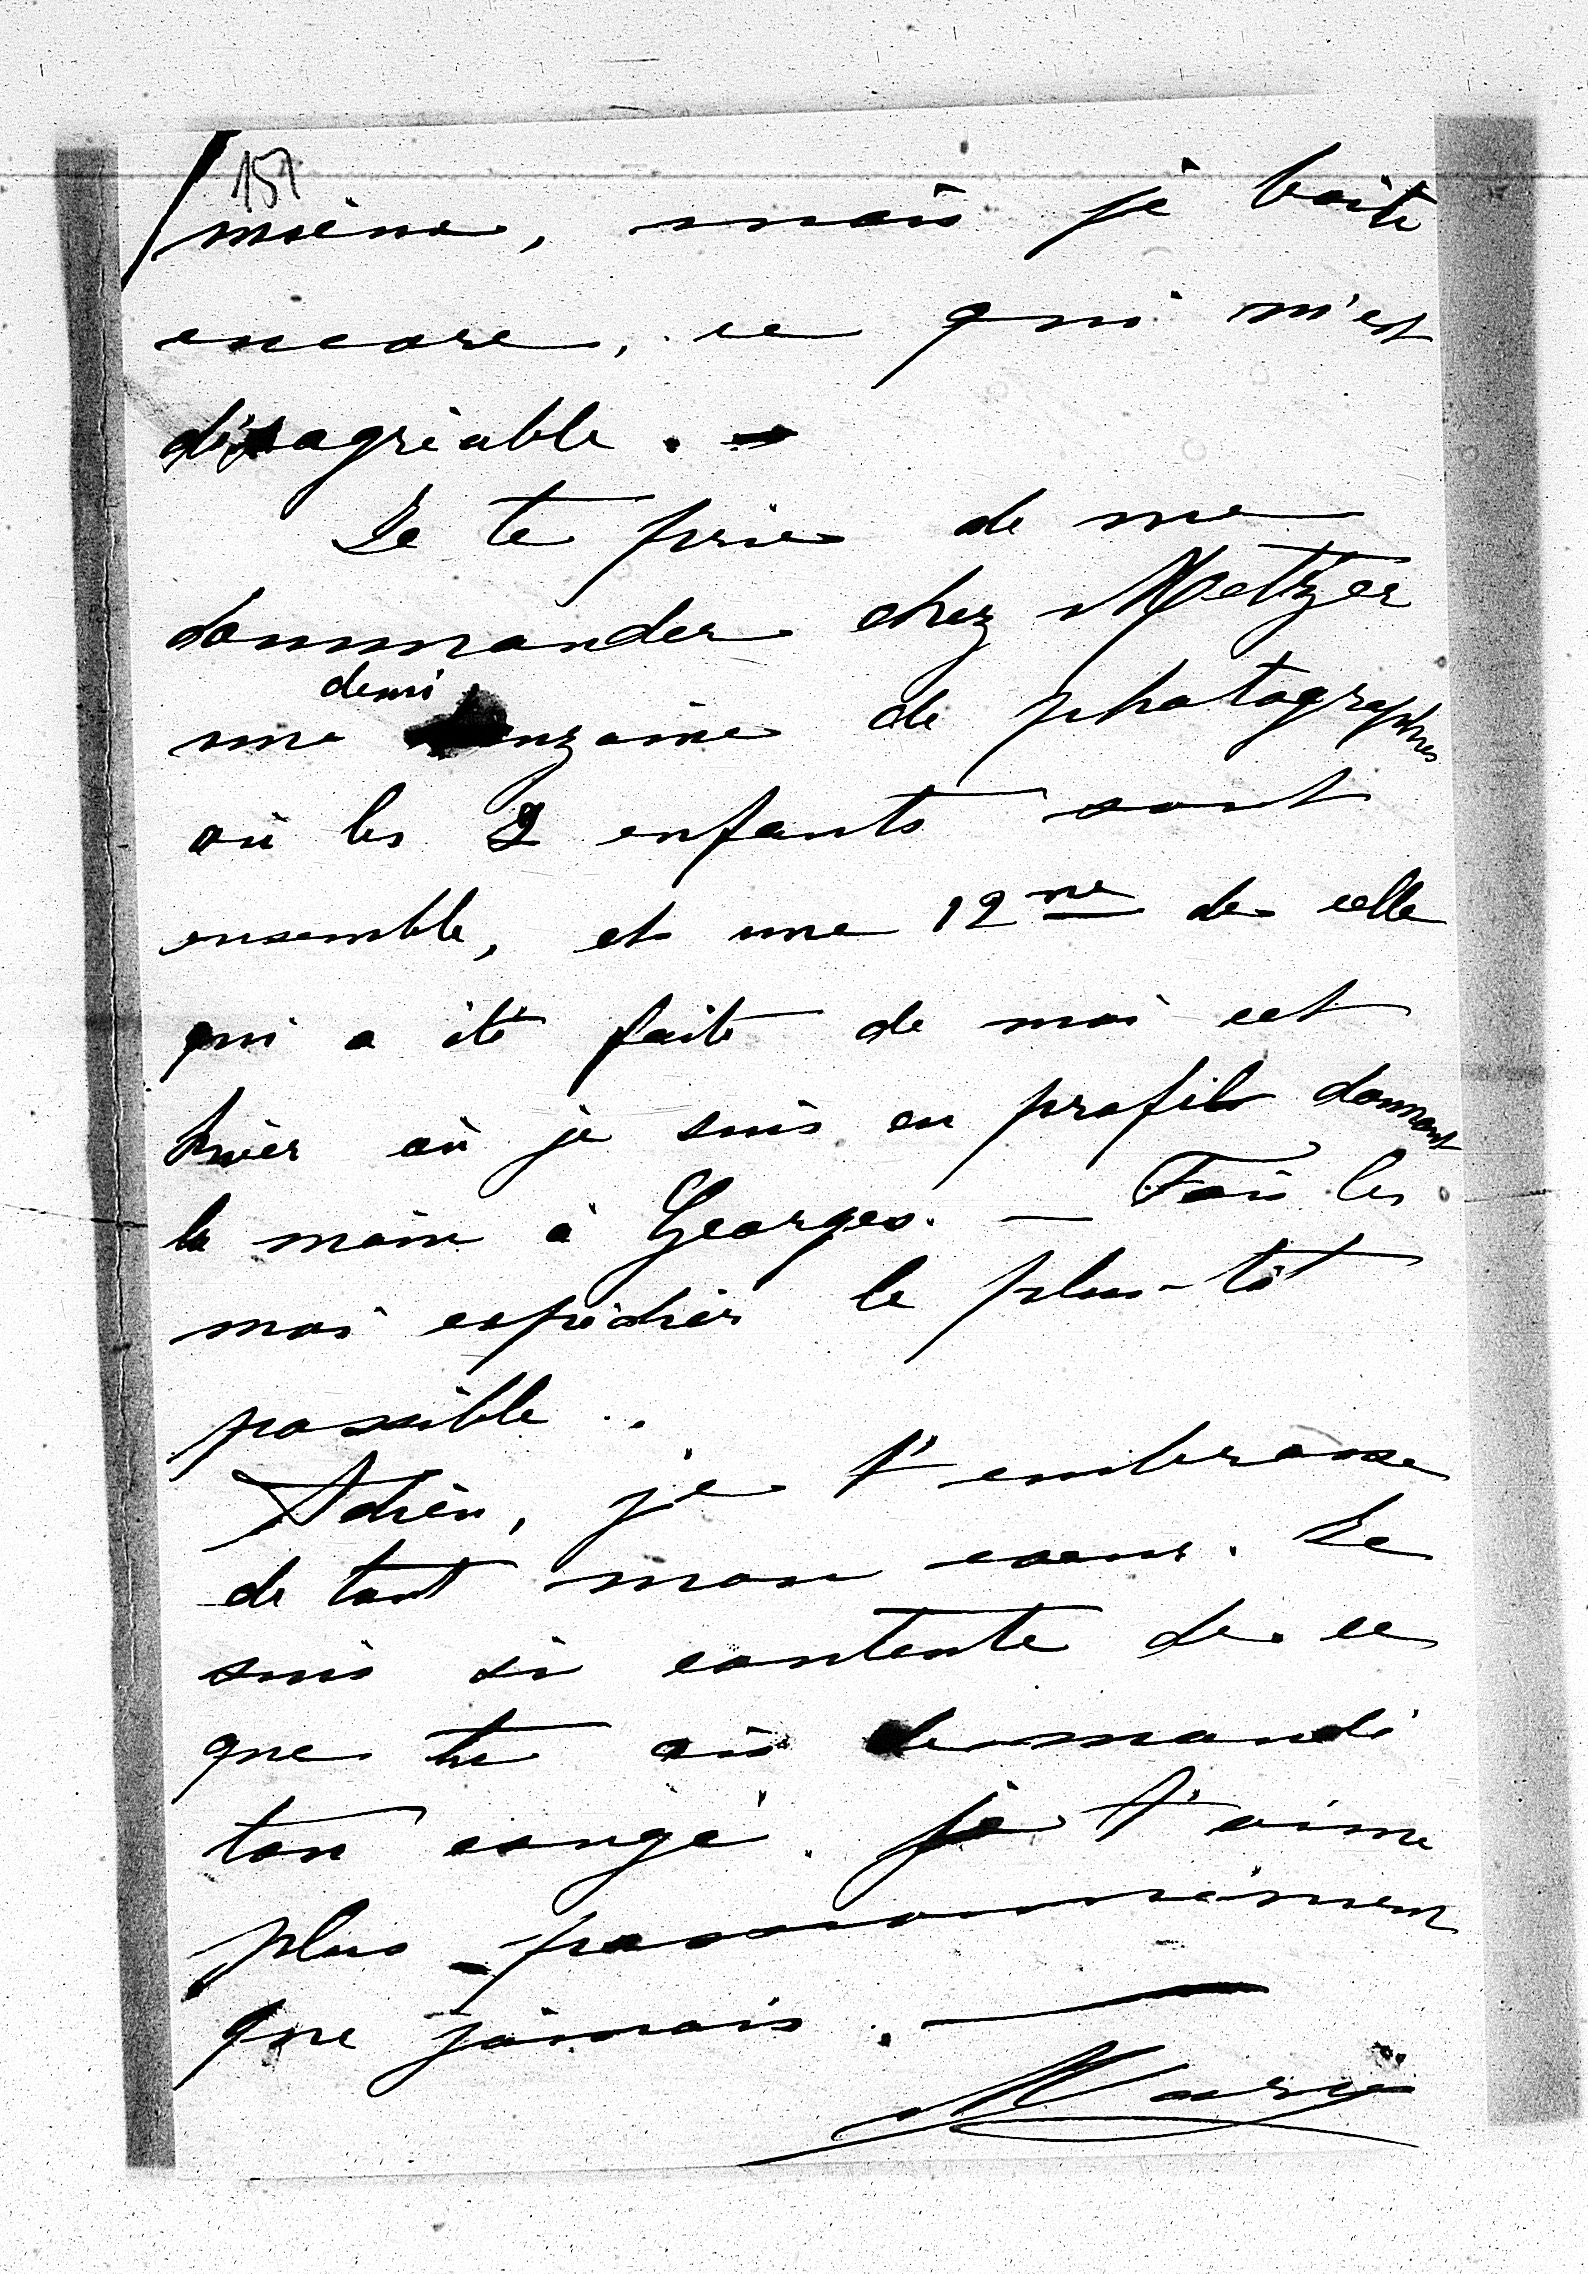 157
moins, mais je boite
encore, ce qui m'est
désagréable. –
Je te prie de me
commander chez Meltzer
demi
une douzaine de photographies
où les 2 enfants sont
ensemble, et une 12ne de celle
qui a été faite de moi cet
hiver où je suis en profil donnant
la main à Georges. — Fais les
moi expédier le plus-tôt
possible..
Adieu, je t'embrasse
de tout mon coeur. Je
suis si contente de ce
que tu ais demandé
ton congé. je t'aime
plus passionnément
que jamais. —
Marie